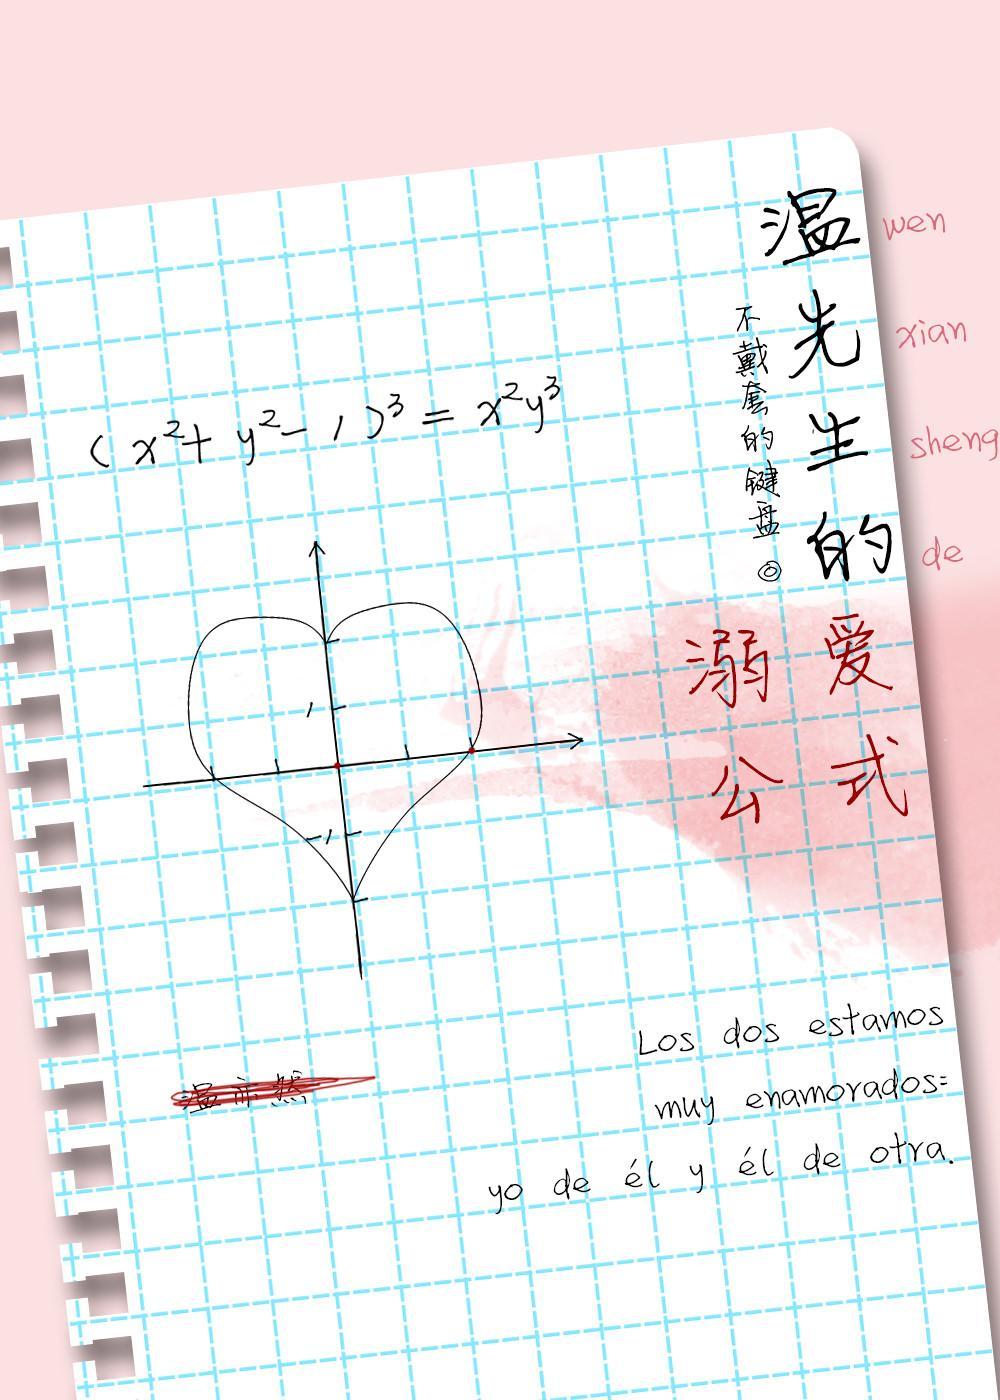 温先生的
溺爱
公式
wen
xian
sheng
de
不戴套的键盘 ◎
(x²+y²-1)³=x²y³
1
-1
温亦然
Los dos estamos
muy enamorados:
yo de él y él de otra.